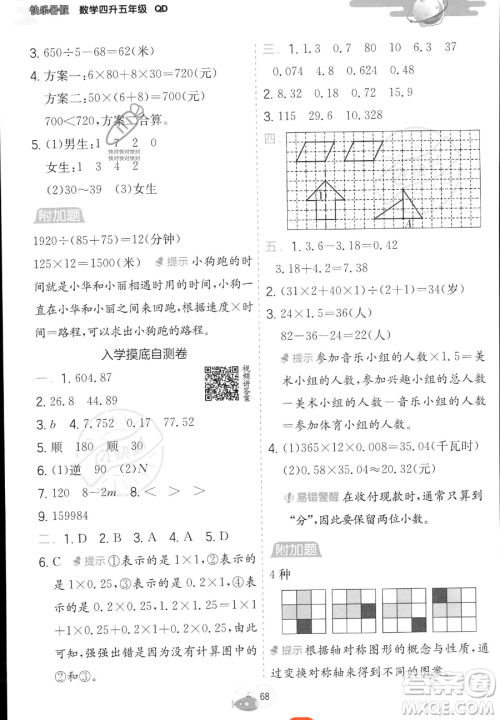 快乐暑假 数学四升五年级 QD
3. 650÷5-68=62(米)
4. 方案一:6×80+8×30=720(元)
方案二:50×(6+8)=700(元)
700<720,方案二合算。
6. (1)男生:1 7 2 0
女生:2 4 3 1
(2)30~39 (3)女生
附加题
1920÷(85+75)=12(分钟)
125×12=1500(米) 提示 小狗跑的
时间就是小华和小丽相遇时用的时间,小狗一
直在小华和小丽之间来回奔跑,根据速度×时
间=路程,可以求出小狗跑的路程。
入学摸底自测卷
视频讲答案
一、1. 604.87
2. 26.8 44.89
3. b 4. 7.752 0.17 77.52
5. 顺 180 顺
6. (1)逆 90 (2)N
7. 120 8-2m 8. < > >
9. 159984
二、1. D 2. B 3. A 4. A 5. D
6. C 提示 ①表示的是1×1,②表示的
是1×0.25,③表示的是0.2×1,④表示
的是0.2×0.25。①+②表示的是1×
1+1×0.25,所以计算图中的②表示的
是1×0.25。
三、1. 0.32 2.8 15 0.038 13
0.074 4.8 1.52
2. 0.828 0.54 15.9 7.2
3. 115 29.6 10.328
四、
A
五、1. 3.6-3.18=0.42
3.18+4.2=7.38
2. (31×2+40)×31=3162(元)
3. (24×1.5)+24-2×12=36(人)
82-36-24=22(人)
提示 参加音乐小组的人数×1.5=美
术小组的人数,总人数-参加音乐小组的人数
-美术小组的人数=参加体育小组的人数,
参加体育小组的人数
4. (1)365×12×0.008=35.04(千瓦时)
(2)0.51×35.04≈17.87(元)
易错警醒 在收付现款时,通常只算到
“分”,因此要保留两位小数。
附加题
4种
提示 根据轴对称图形的概念与性质,通
过变换阴影方格的位置使其成为轴对称图形。
68